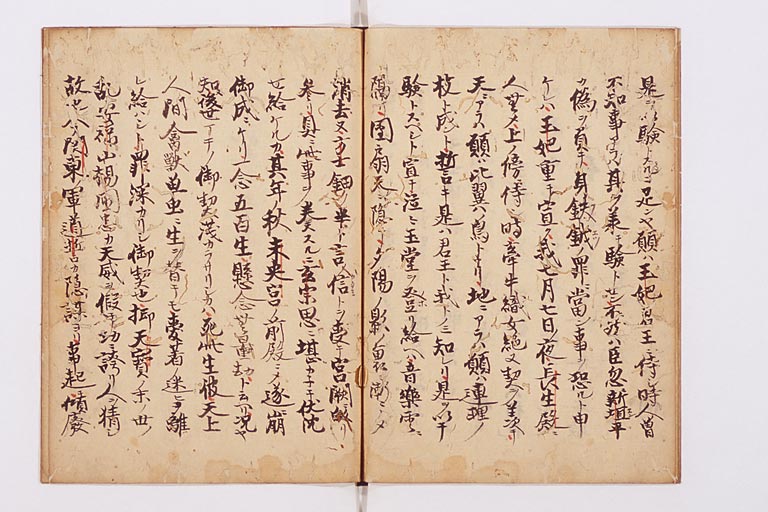 是ヲ以験トスルニ足ンヤ願ハ王妃君王ニ侍シ時人曽
不知事有ハ其ヲ奏テ験トセン不然ハ臣忽新垣平
カ偽ヲ負テ身鈇鉞ノ罪ニ當ン事ヲ恐ルト申
ケレハ王妃重テ宣ク我七月七日夜長生殿ニ
人無シテ上ノ傍ニ侍シ時牽牛織女絶ヌ契ヲ羨テ
天ニアラハ願ハ比翼ノ鳥トナリ地ニアラハ願ハ連理ノ
枝ト成ト誓言キ是ハ君王ト我トノミ知レリ是ヲ以テ
験トスベシト宣テ泣々玉堂ヲ登リ給ヘハ音樂雲ニ
隔リ團扇天ニ隠テ夕陽ノ影ノ裏漸々ニ
消去ヌ方士鈿ノ半ト言信トヲ受テ宮闕ニ皈リ
参リ具ニ此事ヲ奏スルニ玄宗思ニ堪カネテ伏沈
セ給ケルカ其年ノ秋未央宮ノ前殿ニシテ遂ニ崩
御成ニケリ一念五百生懸念無量劫ト云リ況ヤ
知後世マテノ御契浅カラサリシカハ死此生彼天上
人間禽獣虫ニ生ヲ替テモ愛著ノ迷ヒヲ離
レ給ハシト罪深カリシ御契也抑天寶ノ末ノ世ノ
乱安禄山楊國忠カ天威ヲ假テ功ニ誇リ人ヲ猜シ
故也今ノ関東軍道誓カ隠謀ヨリ事起テ傾廢